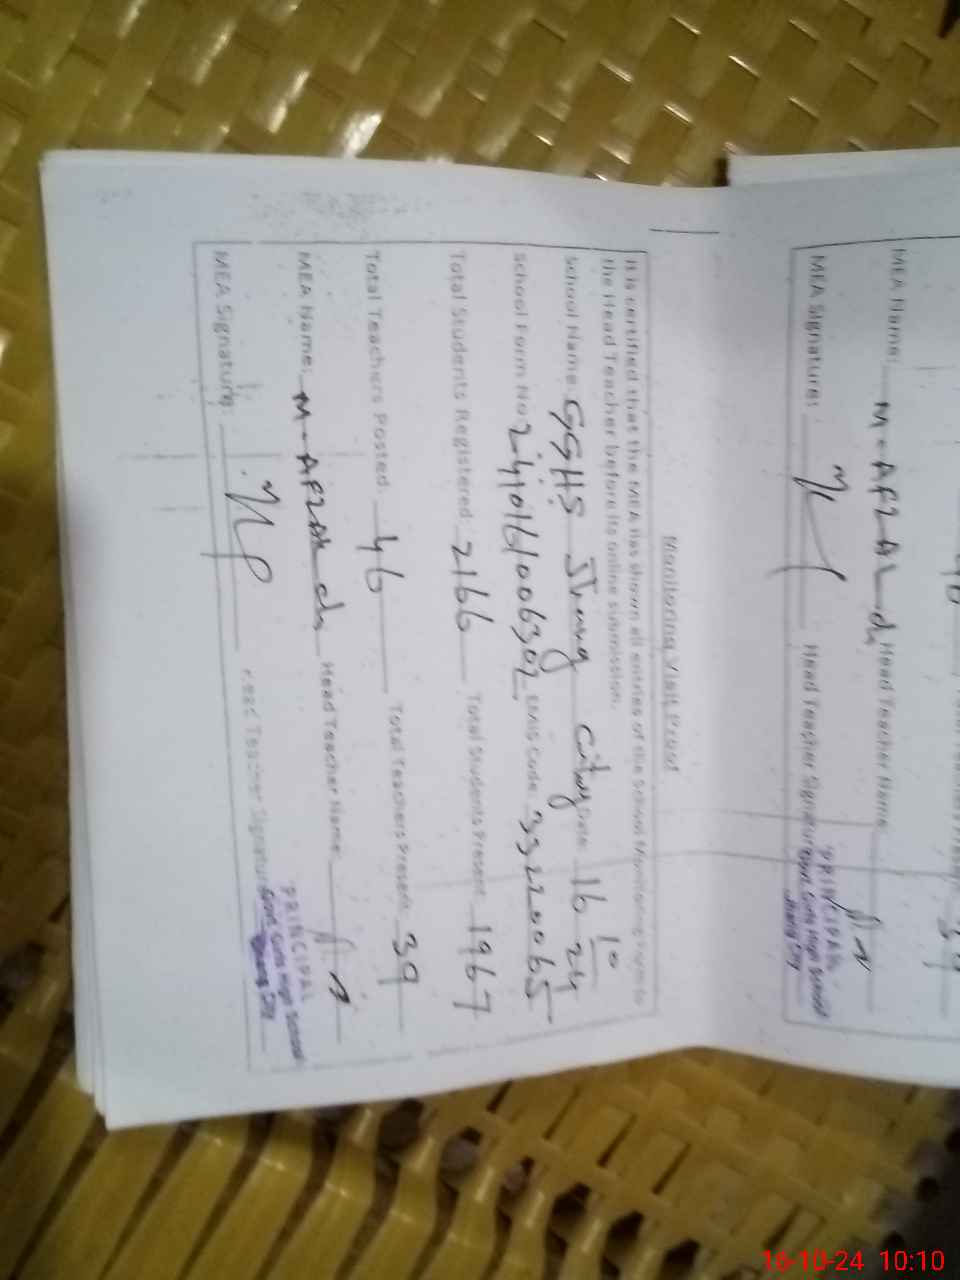 MEA Name: M-AFZAL ch Head Teacher Name:
MEA Signature: Head Teacher Signature
PRINCIPAL
Govt. Girls High School
Jhang City
Monitoring Visit Proof
It is certified that the MEA has shown all entries of the School Monitoring Form to
the Head Teacher before its online submission.
School Name: GGHS Jhang City Date: 16 10 24
School Form No: EMIS Code: 33220065
Total Students Registered: 2166 Total Students Present: 1967
Total Teachers Posted: 46 Total Teachers Present: 39
MEA Name: M-AFZAL ch Head Teacher Name:
MEA Signature: Head Teacher Signature
PRINCIPAL
Govt. Girls High School
Jhang City
16-10-24 10:10